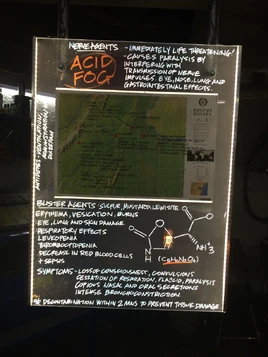 NERVE AGENTS - IMMEDIATELY LIFE THREATENING!
ACID FOG
- CAUSES PARALYSIS BY
INTERFERING WITH
TRANSMISSION OF NERVE
IMPULSES. EYE, NOSE, LUNG AND
GASTROINTESTINAL EFFECTS.
ANTIDOTES - VENTILATION,
ADMINISTRATION
DIAZEPAM
BLISTER AGENTS (SULFUR, MUSTARD, LEWISITE
ERYTHEMA, VESICATION, BURNS
EYE, LUNG AND SKIN DAMAGE
RESPIRATORY EFFECTS
LEUKOPENIA
THROMBOCYTOPENIA
DECREASE IN RED BLOOD CELLS
+ SEPSIS
O
O
N
H
NH3
SYMPTOMS - LOSS OF CONSCIOUSNESS, CONVULSIONS
CESSATION OF RESPIRATION, FLACCID, PARALYSIS
COPIOUS NASAL AND ORAL SECRETIONS
INTENSE BRONCHOCONSTRICTION
DECONTAMINATION WITHIN 2 MINS TO PREVENT TISSUE DAMAGE